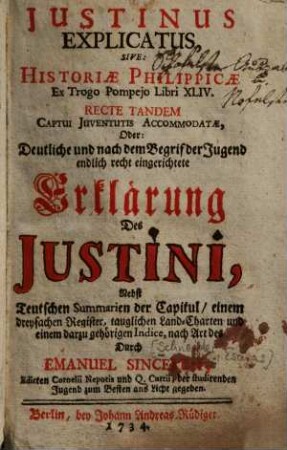 JUSTINUS
EXPLICATUS,
SIVE:
HISTORIÆ PHILIPPICÆ
Ex Trogo Pompejo Libri XLIV.
RECTE TANDEM
CAPTUI JUVENTUTIS ACCOMMODATÆ,
Oder:
Deutliche und nach dem Begrif der Jugend
endlich recht eingerichtete
Erklärung
Des
JUSTINI,
Nebst
Teutschen Summarien der Capitul / einem
dreyfachen Register, tauglichen Land-Charten und
einem darzu gehörigen Indice, nach Art des
Durch
EMANUEL
Edirten Cornelii Nepotis und Q. Curtii der studirenden
Jugend zum Besten ans Licht gegeben.
Berlin, bey Johann Andreas Rüdiger.
1734.